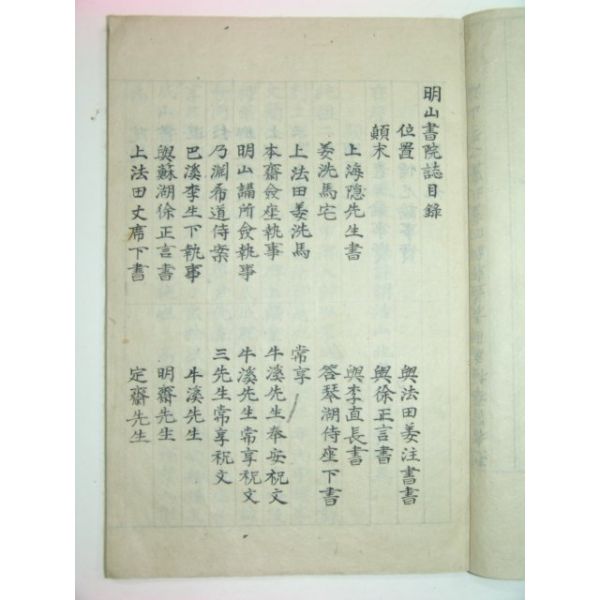 明山書院誌目錄
位置 與法田姜注書書
顛末 與徐正言書
上海隱先生書 與李直長書
姜洗馬宅 答琴湖侍座下書
上法田姜洗馬 常享
本齋僉座執事 牛溪先生奉安祝文
明山講所僉執事 牛溪先生常享祝文
乃淵希道侍案 三先生常享祝文
巴溪李生下執事 牛溪先生
與蘇湖徐正言書 明齋先生
上法田丈席下書 定齋先生